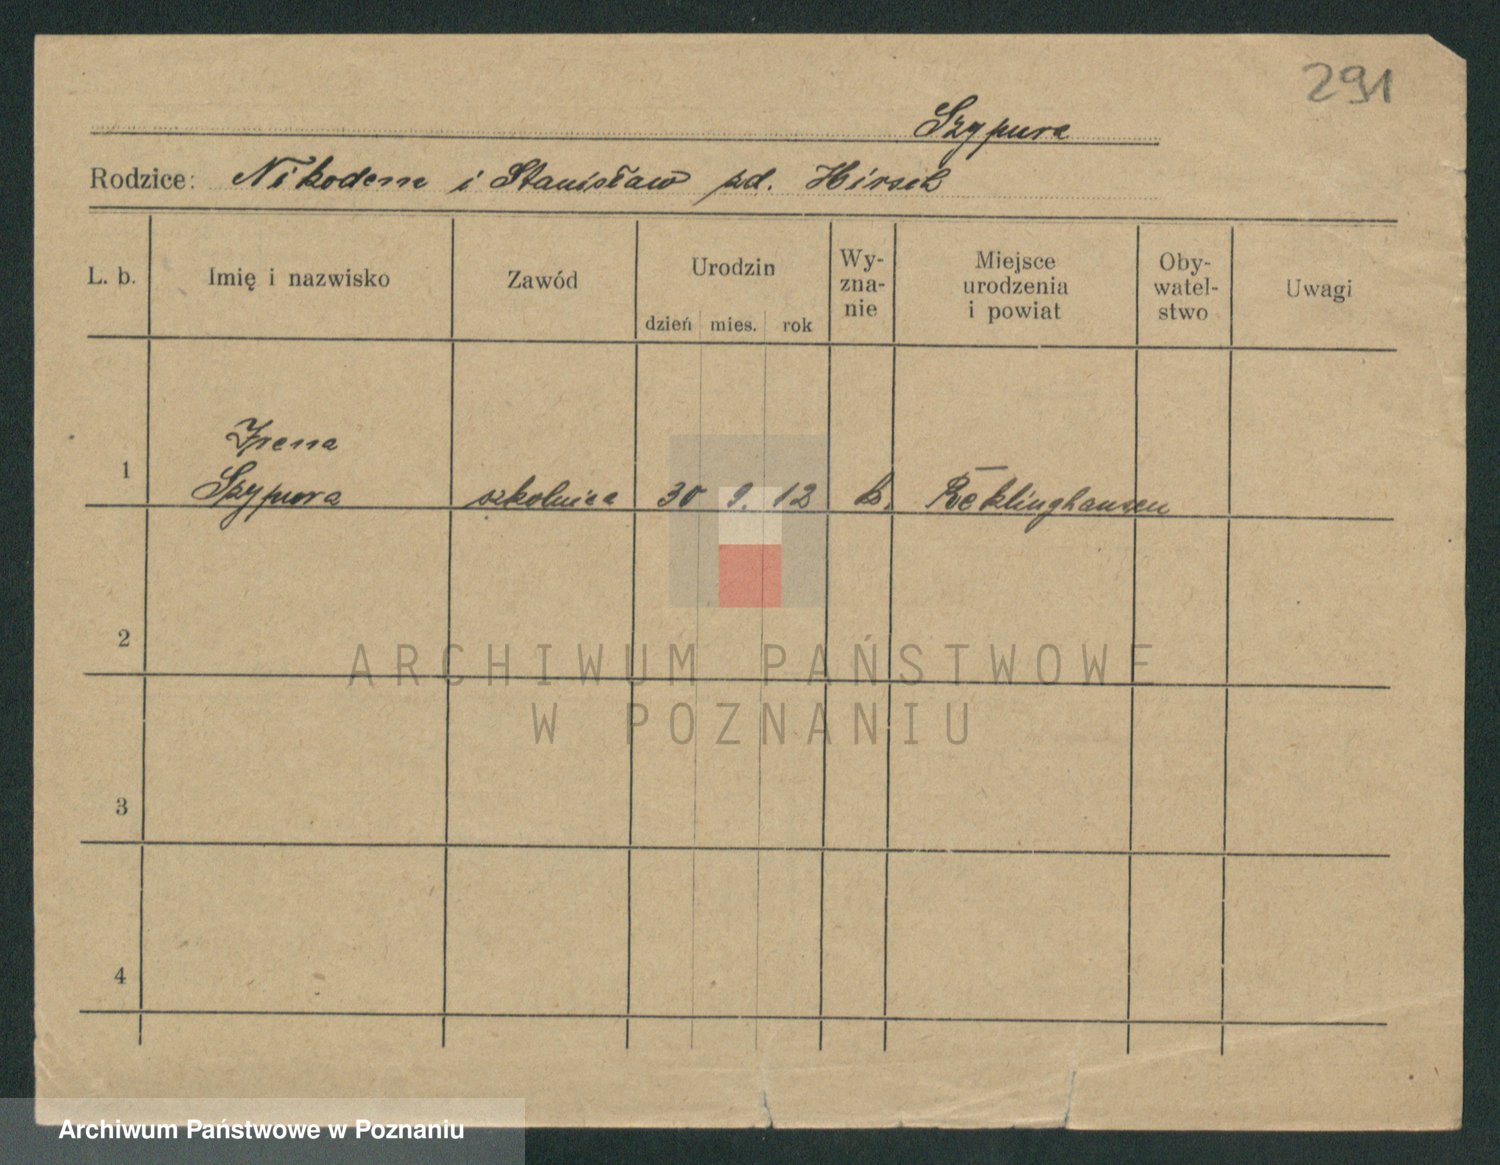 291
Szypura
Rodzice: Nikodem i Stanisław zd. Hirsch
L. b. Imię i nazwisko Zawód Urodzin Wy-zna-nie Miejsce urodzenia i powiat Oby-watel-stwo Uwagi
dzień mies. rok
Irena
1 Szypura szkolnica 30 9. 12 k. Reklinghausen
2
ARCHIWUM PAŃSTWOWE
W POZNANIU
3
4
Archiwum Państwowe w Poznaniu